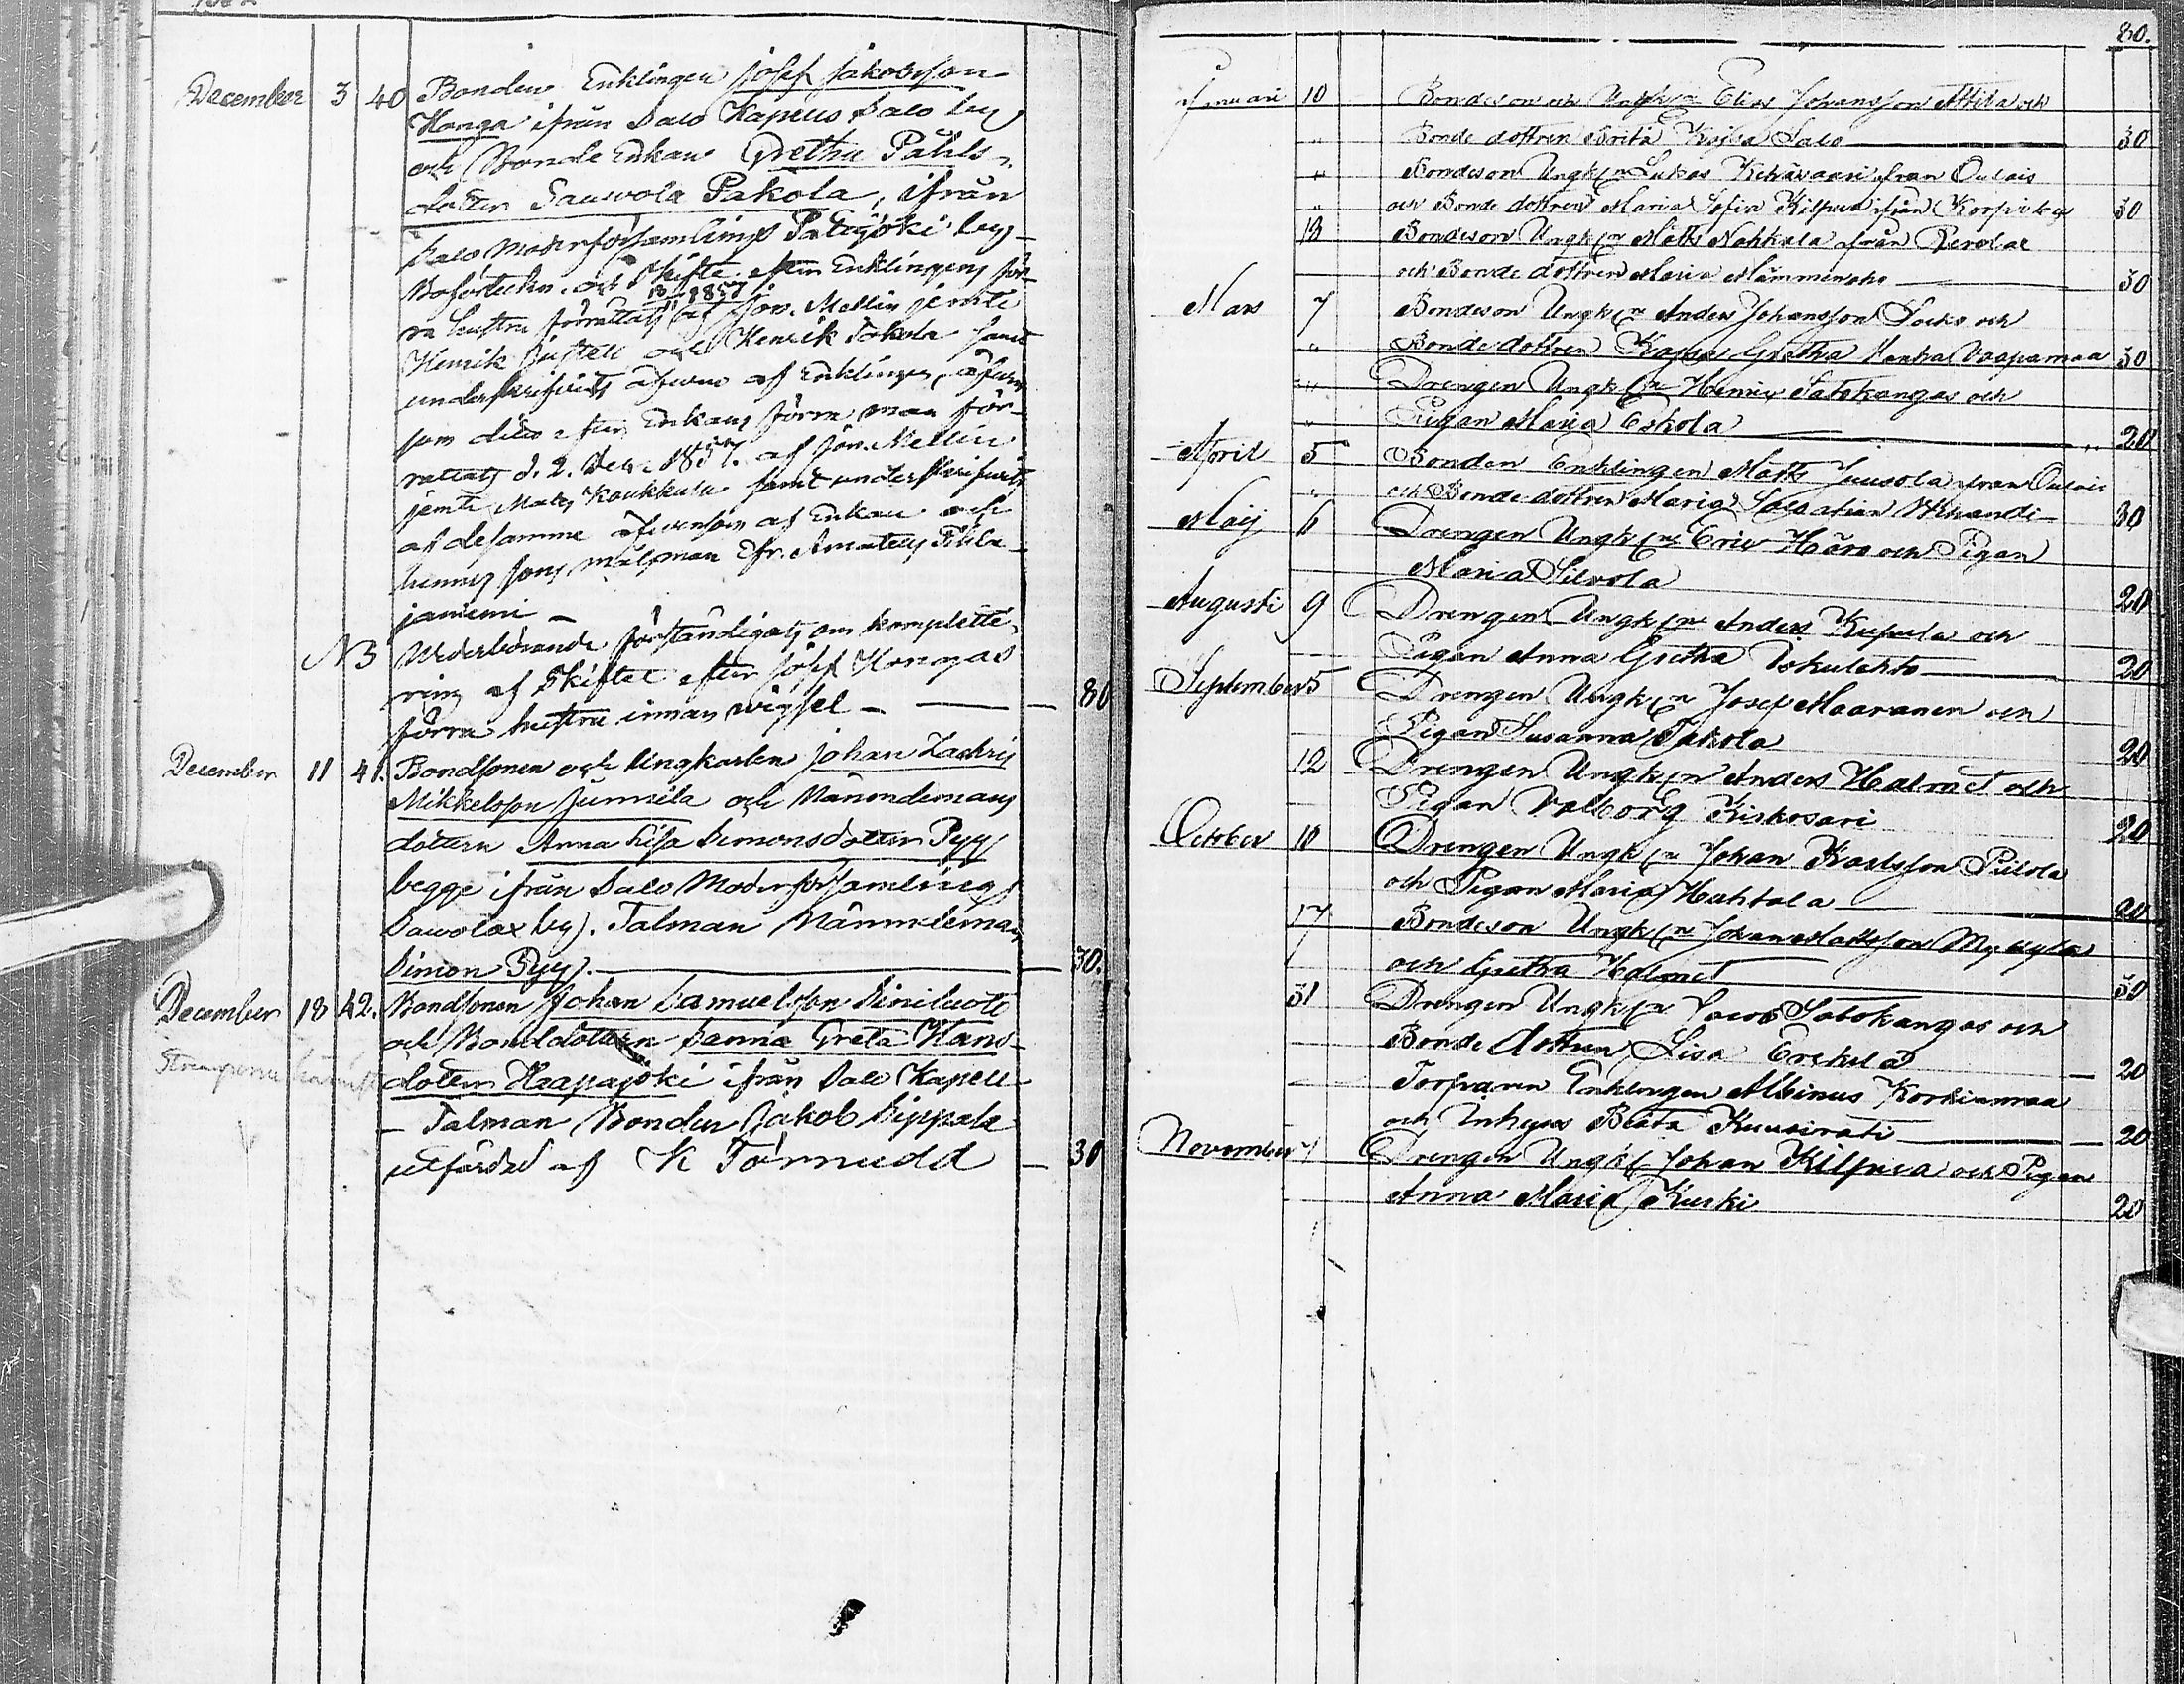 December 3 40 Bonden Enklingen Josef Jakobsson
Konga ifrån Salo Kapells Salo by
och Bonde Enkan Gretha Påhls-
dotter Sauvola Pakola, ifrån
Salo Moderförsamlings Patijoki by
Boförteckn. och Skifte efter Enklingens för-
ra hustru förrättats 1857 af Jön. Mellin jemte
Henrik och Henrik Tokola samt
underskrifvits äfven af Enklingen, äfven
som dito efter Enkans förra man för-
rättats d. 2. Dec. 1857. af Jön. Mellin
jemte Mats Koukkula samt underskrifvits
af desamme äfvensom af Enkan och
hennes sons målsman Efr. Amateus Pihla-
janiemi —
NB Wederbörande förständigats om komplette-
ring af Skiftet efter Josef Kongas
förra hustru innan wigsel — 80
December 11 41. Bondsonen och Ungkarlen Johan Zachris
Mikkelsson Junnila och Nämndemans
dottern Anna Lisa Simonsdotter Pyy
begge ifrån Salo Moderförsamlings
Savolax by. Talman Nämndeman
Simon Pyy. — 30.
December 18 42. Bondsonen Johan Samuelsson Siniluoto
och Bonddottern Sanna Greta Hans-
dotter Haapajoki ifrån Salo Kapell
— Talman Bonden Jakob Sippala
utfärdad af K Törnudd — 30
80.
Januari 10 Bondeson och Ungk:n Elias Johansson Attila och
" Bonde dottren Brita Kajsa Salo 30
" Bondeson Ungk:n Lukas Keträvaari från Oulais
" och Bonde dottren Maria Sofia Kilpua från Korpioky 30
13 Bondeson Ungk:n Matts Nahkala från
och Bonde dottren Maria Mämmenoho 30
Mars 7 Bondeson Ungk:n Anders Johansson Locko och
" Bonde dottren Kajsa Gretha Hanha Vaapamaa 30
" Drengen Ungk:n Henric Satokangas och
" Pigan Maria Eskola " 20
April 5 Bonden Enklingen Matts Juusola från Oulais
" och Bonde dottren Maria 30
Maij 6 Drengen Ungk:n Eric Häro och Pigan
Maria Silvola 20
Augusti 9 Drengen Ungk:n Anders Kupula och
Pigan Anna Gretha Iskulehto 20
September 5 Drengen Ungk:n Josef Maaranen och
Pigan Susanna Takola 20
12 Drengen Ungk:n Anders Halmet och
Pigan Valborg Kiskosari 20
October 10 Drengen Ungk:n Johan Karlsson Pirlola
och Pigan Maria Huhtala 20
17 Bondeson Ungk:n Johan Mattsson Myllylä
och Gretha Halmet 30
31 Drengen Ungk:n Jacob Satokangas och
Bonde dottren Lisa Erkkilä — 20
Torparen Enklingen Albinus Korkiamaa
och Inhyses Beata Kuusirati — 20
November 7 Drengen Ungk: Johan Kilpua och Pigan
Anna Maria Kurki 20